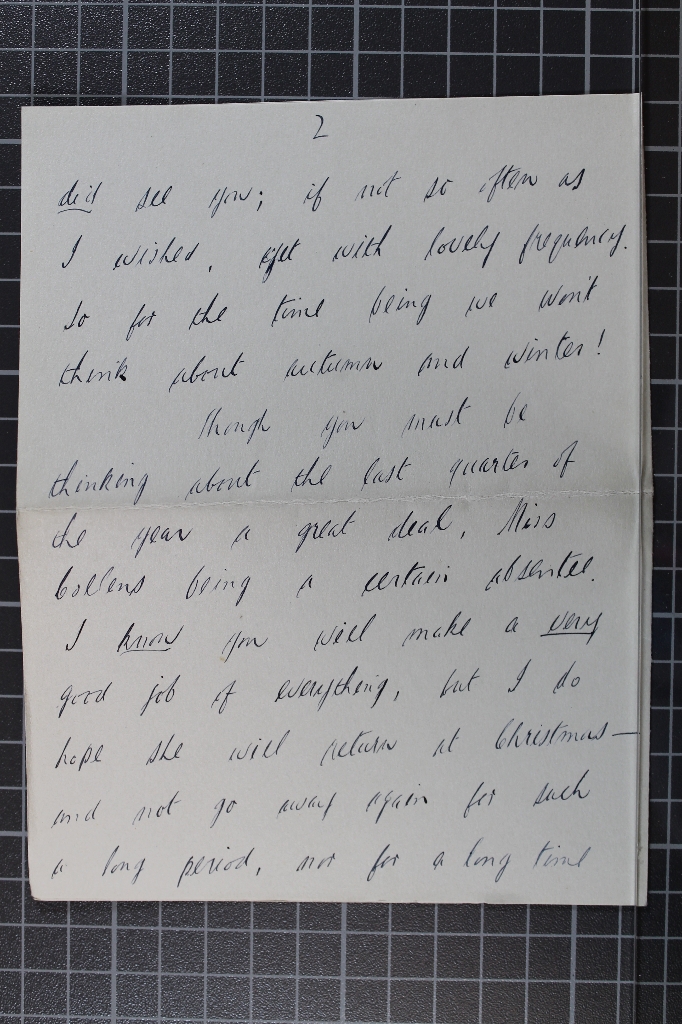 2
did see you; if not so often as
I wished, yet with lovely frequency.
So for the time being we won't
think about autumn and winter!
Though you must be
thinking about the last quarter of
the year a great deal, Miss
Collens being a certain absentee.
I know you will make a very
good job of everything, but I do
hope she will return at Christmas—
and not go away again for such
a long period, nor for a long time